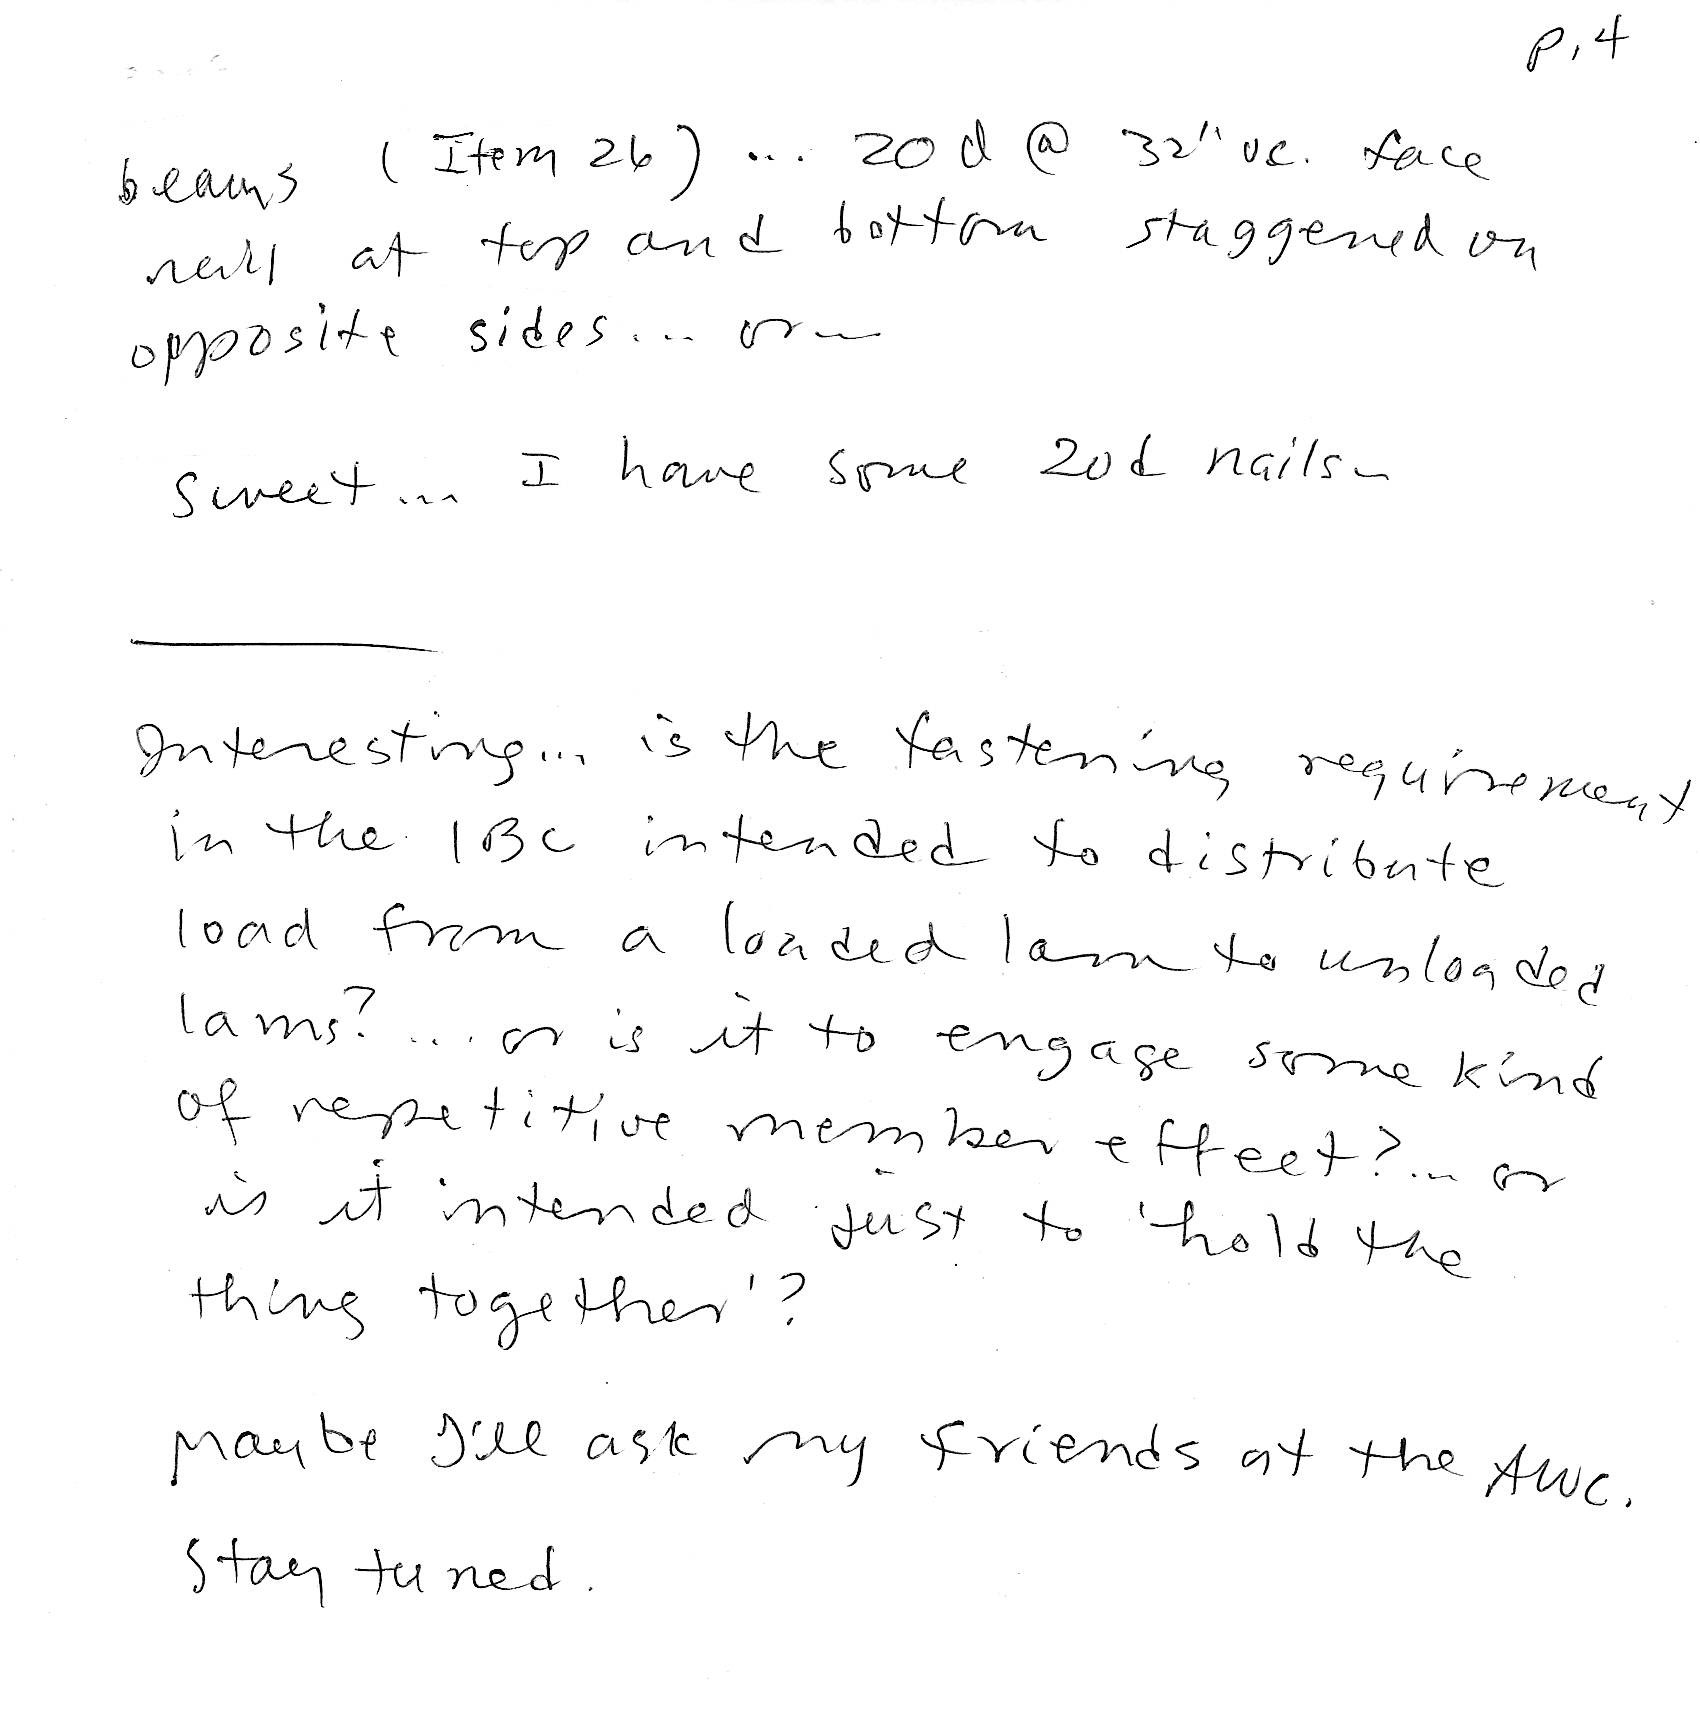 p.4
beams (Item 26) ... 20d @ 32" oc. face
nail at top and bottom staggered on
opposite sides... or...
Sweet... I have some 20d nails...
Interesting... is the fastening requirement
in the IBC intended to distribute
load from a loaded lam to unloaded
lams? ... or is it to engage some kind
of repetitive member effect?... or
is it intended just to 'hold the
thing together'?
Maybe I'll ask my friends at the AWC.
Stay tuned.